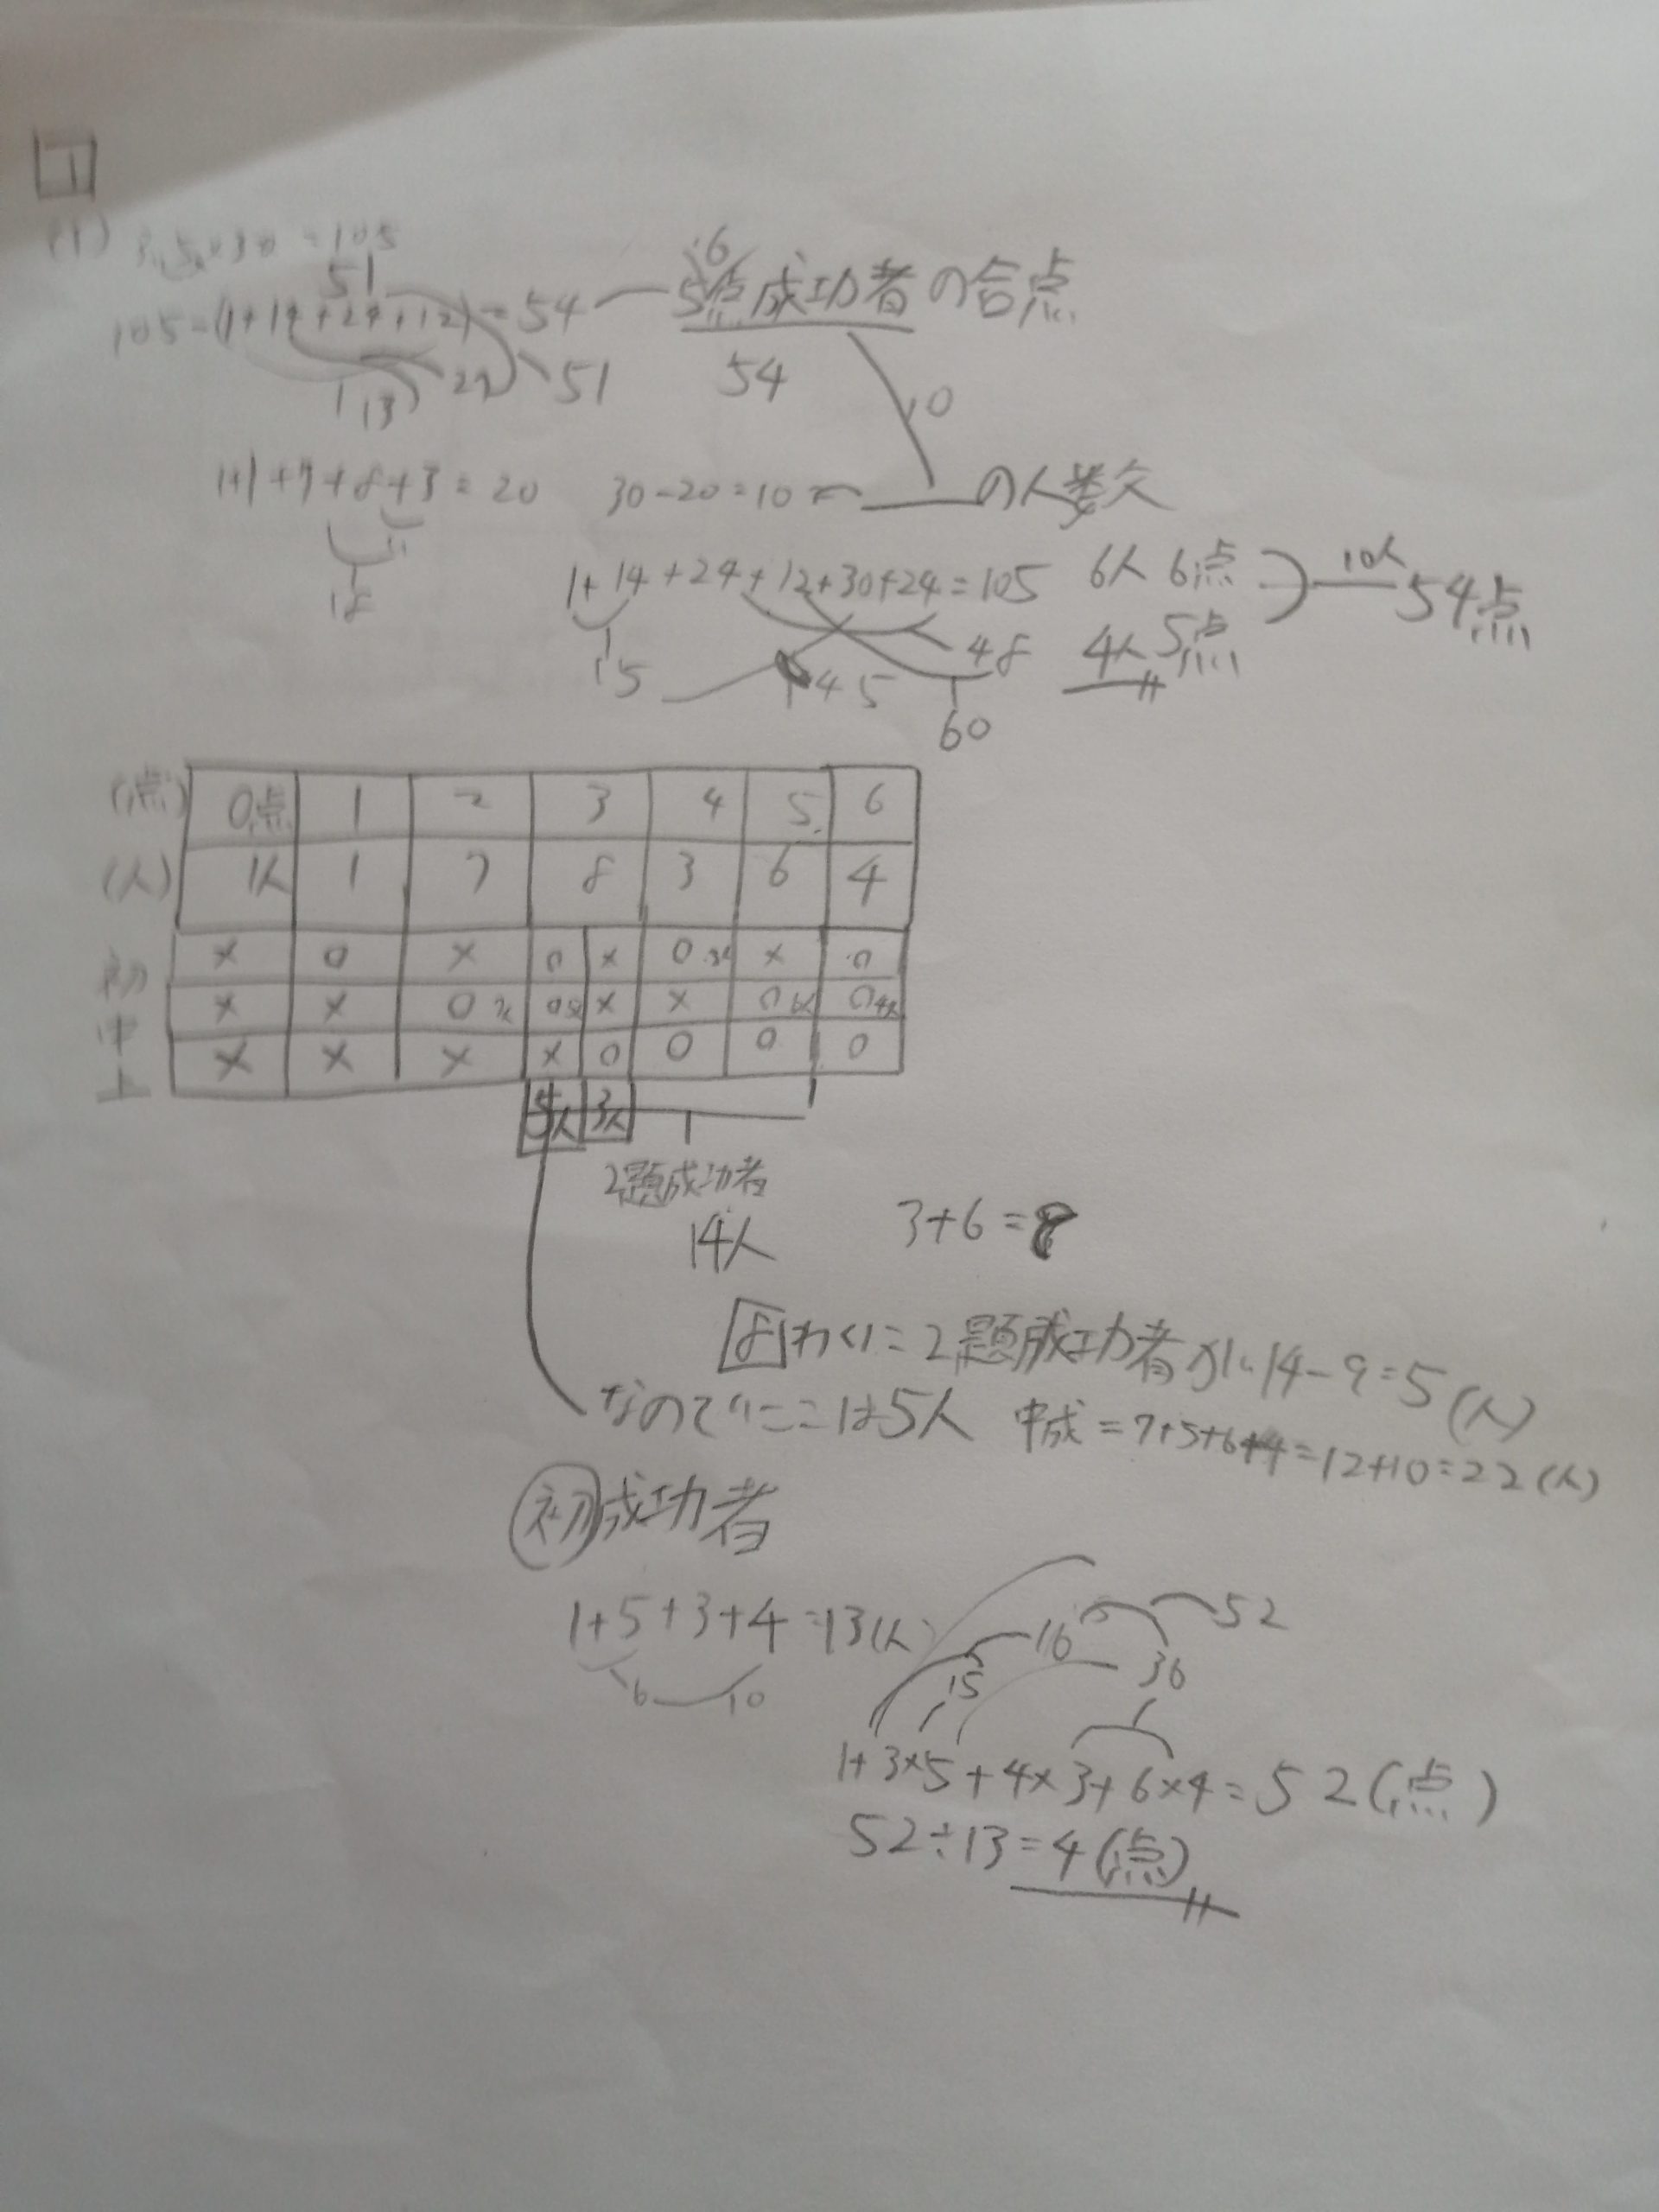 1
(1) 3.5×30=105
51
105-(1+14+24+12)=54 6
5点成功者の合点
13 27 51 54
10
1+1+7+8+3=20 30-20=10= の人数
11
18
1+14+24+12+30+24=105 6人6点 10人 54点
4人5点
15 45 48
60
(点) 0点 1 2 3 4 5 6
(人) 1人 1 7 8 3 6 4
初 × 0 × 0 × 0 3人 × 0
中 × × 0 7人 0 5人 × × 0 6人 0 4人
上 × × × × 0 0 0 0
5人 3人
2題成功者
14人 3+6=
わくに=2題成功者が 14-9=5(人)
なので ここは5人 中成=7+5+6+4=12+10=22(人)
初成功者
1+5+3+4=13(人)
6 10
15 16 36 52
1+3×5+4×3+6×4=52(点)
52÷13=4(点)